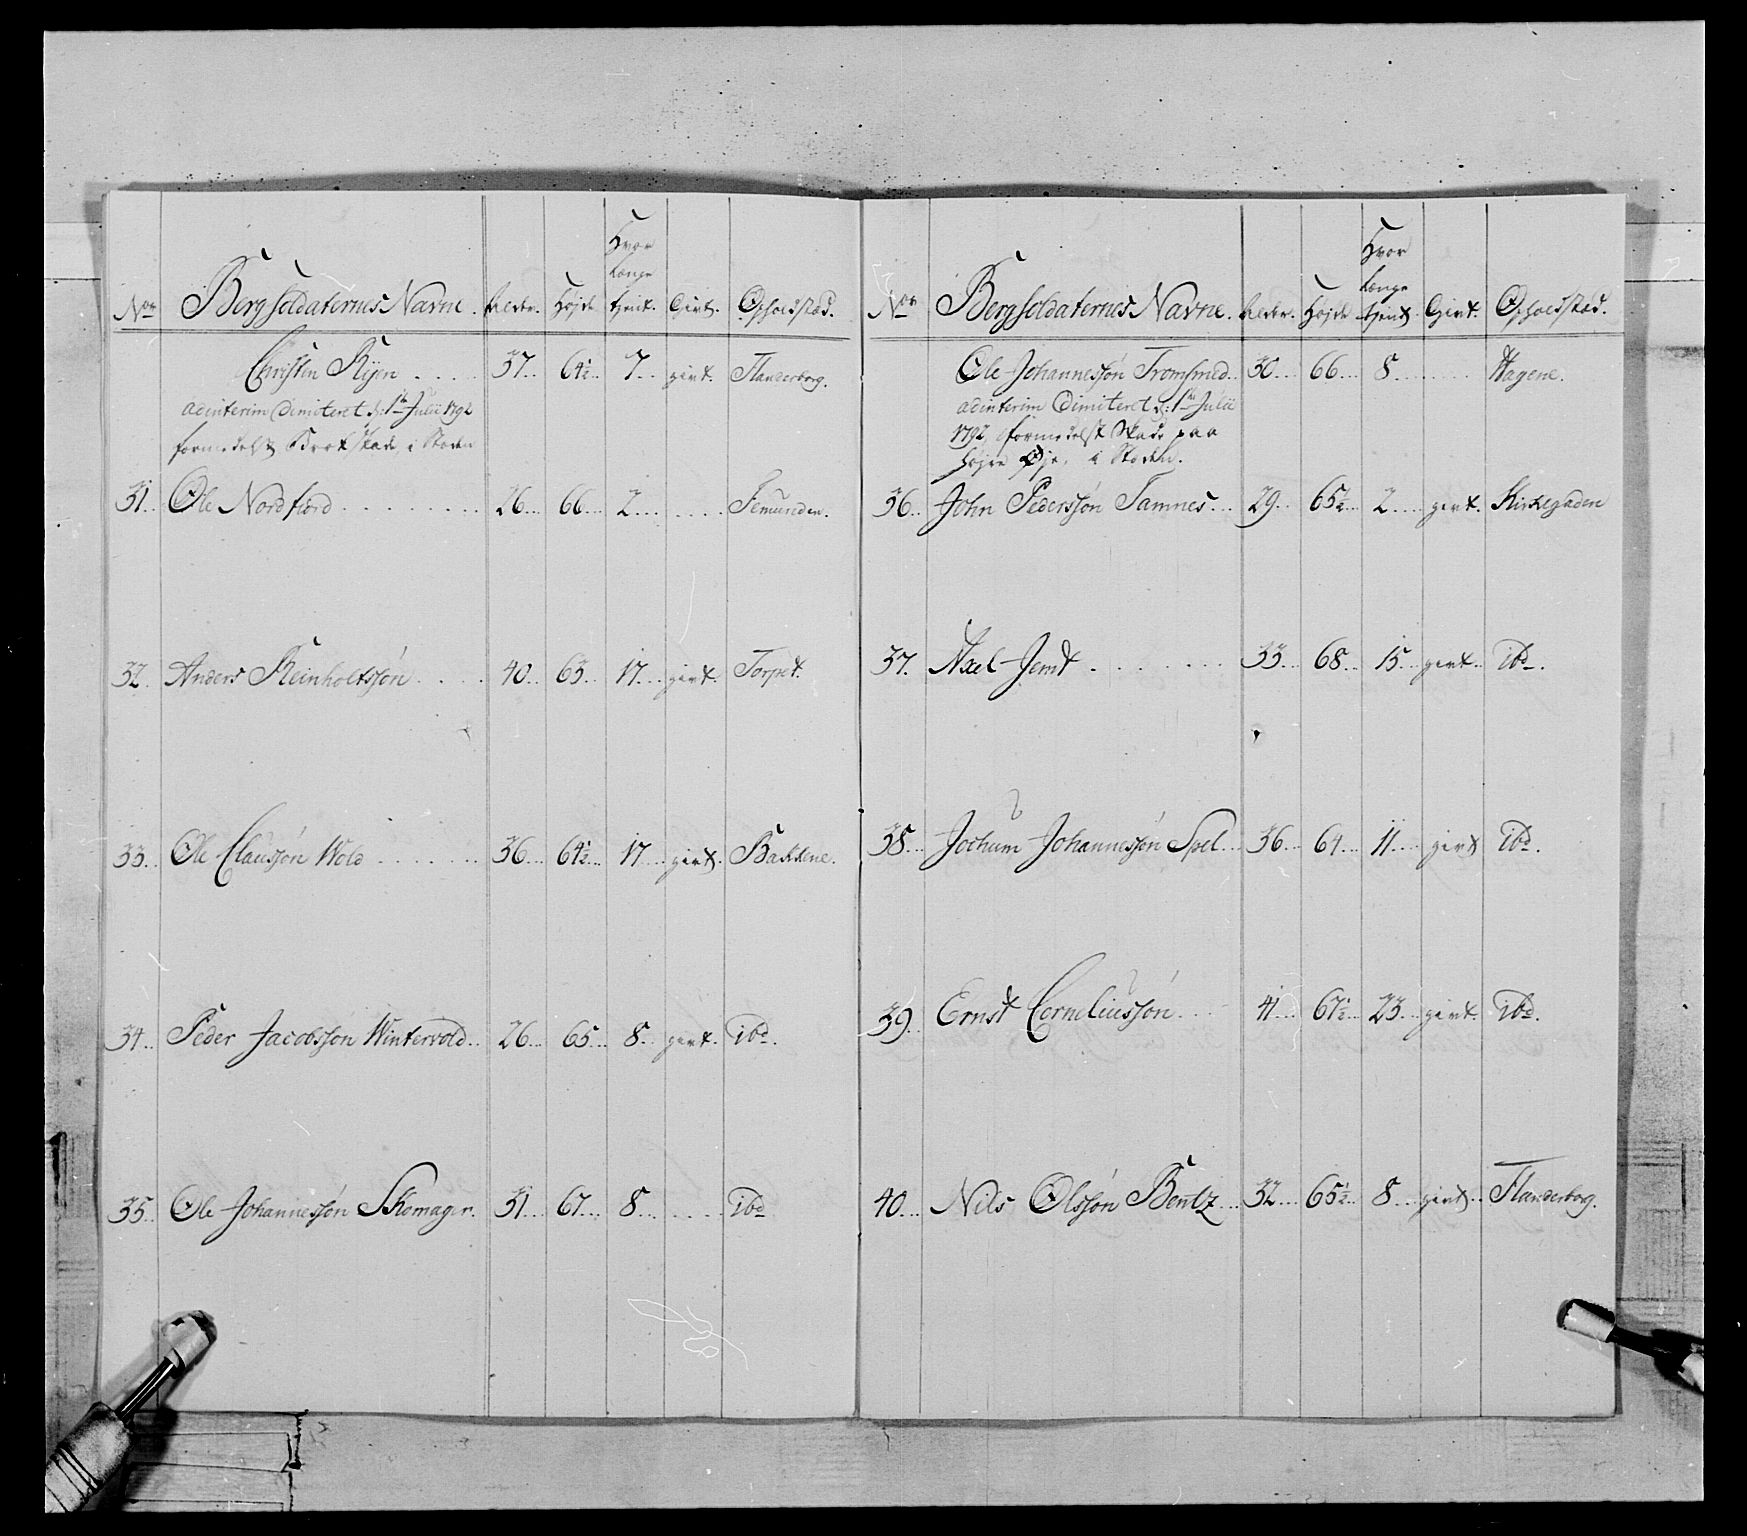 Nor Bergsoldaternes Navne. Alder. Højde Hvor længe tjent. Givt. Opholdsted.
Christen Ryen 37 64½ 7 givt. Flanderborg.
adinterim dimiteret d: 1te Julii 1792
formedelst Brokskade, i Steden
31 Ole Nordfiord 26 66 2 Femunden.
32. Anders Reinholtssøn 40 63 17 givt. Torpet.
33. Ole Claussøn Wold 36 64½ 17 givt. Bakkene.
34. Peder Jacobssøn Wintervold 26 65 8 givt. ibd.
35. Ole Johannessøn Skomager. 31 67 8 ibd
Nor Bergsoldaternes Navne. Alder. Højde Hvor længe tjent Givt. Opholdsted.
Ole Johannessøn Tromsmed 30 66 8 Hagene.
adinterim dimiteret d: 1te Julii
1792, formedelst Skade paa
højre Øje, i Steden.
36. John Pederssøn Tamnes 29 65½ 2 givt. Kirkegaden
37. Axel Jemt 33 68 15 givt. ibd.
38. Jochum Johannessøn Spel 36 64 11 givt ibd.
39. Ernst Corneliussøn 41 67½ 23 givt. ibd.
40. Nils Olssøn Bentz 32 65½ 8 givt. Flanderborg.